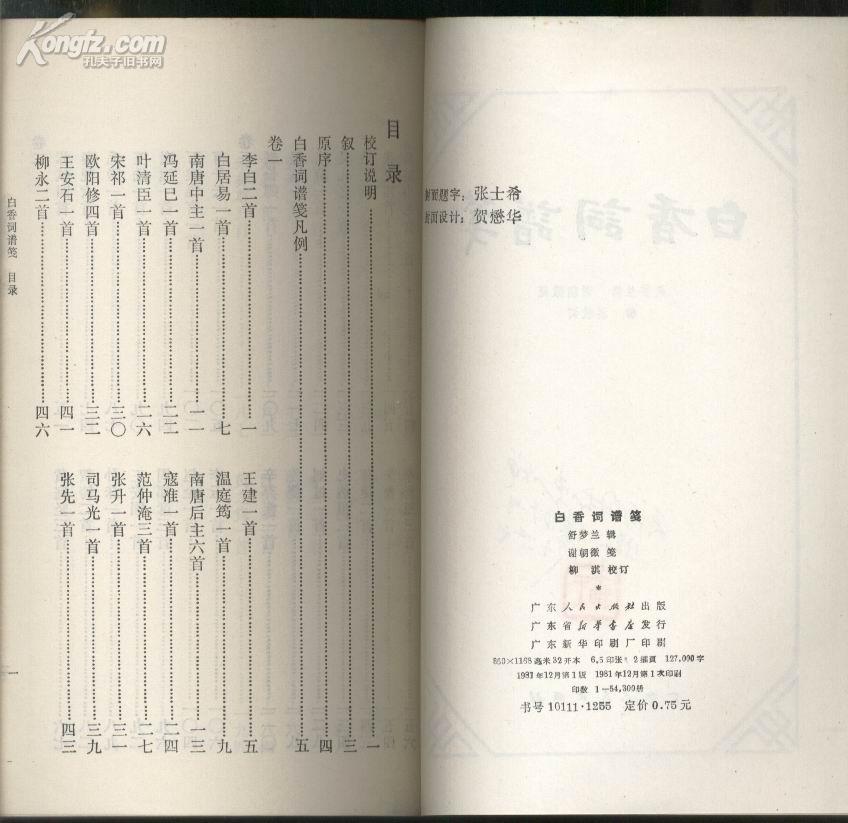 Kongfz.com
孔夫子旧书网
目录
校订说明……一
叙……三
原序……四
白香词谱笺凡例……五
卷一
李白二首……一 王建一首……五
白居易一首……七 温庭筠一首……九
南唐中主一首……一一 南唐后主六首……一三
冯延巳一首……二二 寇准一首……二四
叶清臣一首……二六 范仲淹三首……二七
宋祁一首……三〇 张升一首……三一
欧阳修四首……三二 司马光一首……三九
王安石一首……四一 张先一首……四三
柳永二首……四六
白香词谱笺 目录
一
封面题字：张士希
封面设计：贺懋华
白香词谱笺
舒梦兰 辑
谢朝徵 笺
柳淇 校订
*
广东人民出版社出版
广东省新华书店发行
广东新华印刷厂印刷
850×1168毫米32开本 6.5印张 2插页 127,000字
1981年12月第1版 1981年12月第1次印刷
印数 1—54,300册
书号 10111·1255 定价 0.75 元